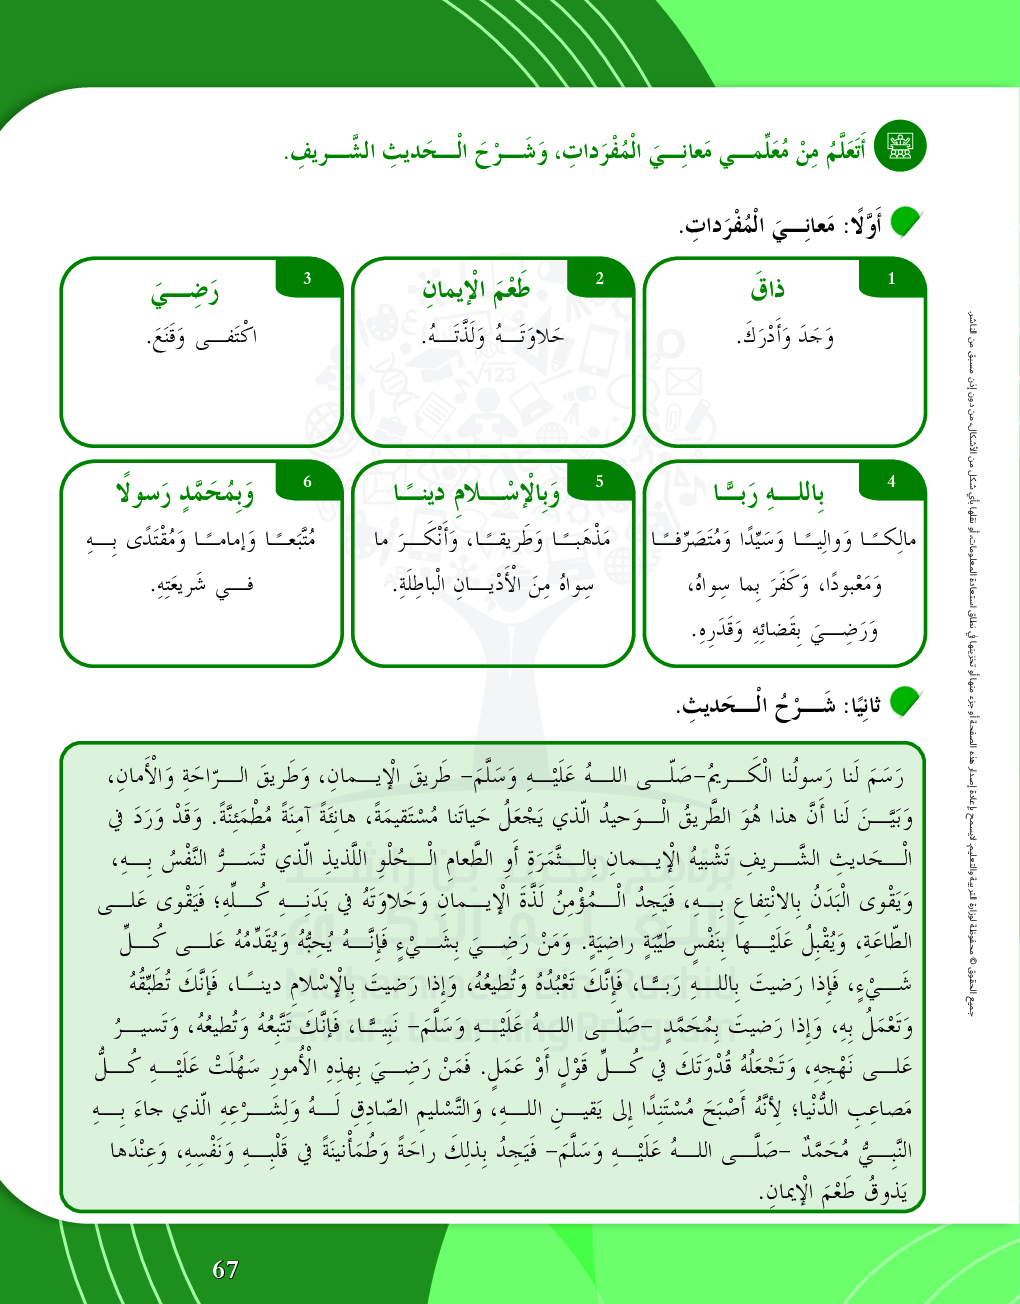 أَتَعَلَّمُ مِنْ مُعَلِّمــي مَعانِــيَ الْمُفْرَداتِ، وَشَــرْحَ الْــحَديثِ الشَّــريفِ.
أَوَّلًا: مَعانِــيَ الْمُفْرَداتِ.
1
ذاقَ
وَجَدَ وَأَدْرَكَ.
2
طَعْمَ الْإيمانِ
حَلاوَتَــهُ وَلَذَّتَــهُ.
3
رَضِــيَ
اكْتَفــى وَقَنَعَ.
4
بِاللــهِ رَبـًّـا
مالِكـًـا وَوالِيـًـا وَسَيِّدًا وَمُتَصَرِّفـًـا
وَمَعْبودًا، وَكَفَرَ بِما سِواهُ،
وَرَضِــيَ بِقَضائِهِ وَقَدَرِهِ.
5
وَبِالْإسْــلامِ دينـًـا
مَذْهَبـًـا وَطَريقـًـا، وَأَنْكَــرَ ما
سِواهُ مِنَ الْأَدْيــانِ الْباطِلَةِ.
6
وَبِمُحَمَّدٍ رَسولًا
مُتَّبَعـًـا وَإمامـًـا وَمُقْتَدًى بِــهِ
فــي شَريعَتِهِ.
ثانِيًا: شَــرْحُ الْــحَديثِ.
رَسَمَ لَنا رَسولُنا الْكَــريمُ-صَلّــى اللــهُ عَلَيْــهِ وَسَلَّمَ- طَريقَ الْإيــمانِ، وَطَريقَ الــرّاحَةِ وَالْأَمانِ،
وَبَيَّــنَ لَنا أَنَّ هذا هُوَ الطَّريقُ الْــوَحيدُ الّذي يَجْعَلُ حَياتَنا مُسْتَقيمَةً، هانِئَةً آمِنَةً مُطْمَئِنَّةً. وَقَدْ وَرَدَ في
الْــحَديثِ الشَّــريفِ تَشْبيهُ الْإيــمانِ بِالــثَّمَرَةِ أَوِ الطَّعامِ الْــحُلْوِ اللَّذيذِ الّذي تُسَــرُّ النَّفْسُ بِــهِ،
وَيَقْوى الْبَدَنُ بِالانْتِفاعِ بِــهِ، فَيَجِدُ الْــمُؤْمِنُ لَذَّةَ الْإيــمانِ وَحَلاوَتَهُ في بَدَنــهِ كُــلِّهِ؛ فَيَقْوى عَلــى
الطّاعَةِ، وَيُقْبِلُ عَلَيْــها بِنَفْسٍ طَيِّبَةٍ راضِيَةٍ. وَمَنْ رَضِــيَ بِشَــيْءٍ فَإنَّــهُ يُحِبُّهُ وَيُقَدِّمُهُ عَلــى كُــلِّ
شَــيْءٍ، فَإذا رَضيتَ بِاللــهِ رَبـًّـا، فَإنَّكَ تَعْبُدُهُ وَتُطيعُهُ، وَإذا رَضيتَ بِالْإسْلامِ دينـًـا، فَإنَّكَ تُطَبِّقُهُ
وَتَعْمَلُ بِهِ، وَإذا رَضيتَ بِمُحَمَّدٍ -صَلّــى اللــهُ عَلَيْــهِ وَسَلَّمَ- نَبِيـًّـا، فَإنَّكَ تَتَّبِعُهُ وَتُطيعُهُ، وَتَسيــرُ
عَلــى نَهْجِهِ، وَتَجْعَلُهُ قُدْوَتَكَ في كُــلِّ قَوْلٍ أَوْ عَمَلٍ. فَمَنْ رَضِــيَ بِهذِهِ الْأُمورِ سَهُلَتْ عَلَيْــهِ كُــلُّ
مَصاعِبِ الدُّنْيا؛ لِأنَّهُ أَصْبَحَ مُسْتَنِدًا إلى يَقيــنِ اللــهِ، وَالتَّسْليمِ الصّادِقِ لَــهُ وَلِشَــرْعِهِ الّذي جاءَ بِــهِ
النَّبِــيُّ مُحَمَّدٌ -صَلَّــى اللــهُ عَلَيْــهِ وَسَلَّمَ- فَيَجِدُ بِذلِكَ راحَةً وَطُمَأْنينَةً في قَلْبِــهِ وَنَفْسِهِ، وَعِنْدَها
يَذوقُ طَعْمَ الْإيمانِ.
جميع الحقوق © محفوظة لوزارة التربية والتعليم. لايسمح بإعادة إصدار هذه الصفحة أو جزء منها أو تخزينها في نطاق استعادة المعلومات، أو نقلها بأي شكل من الأشكال، من دون إذن مسبق من الناشر.
برنامج محمد بن راشد
للتعلم الذكي
Mohammed Bin Rashid
Smart Learning Program
67